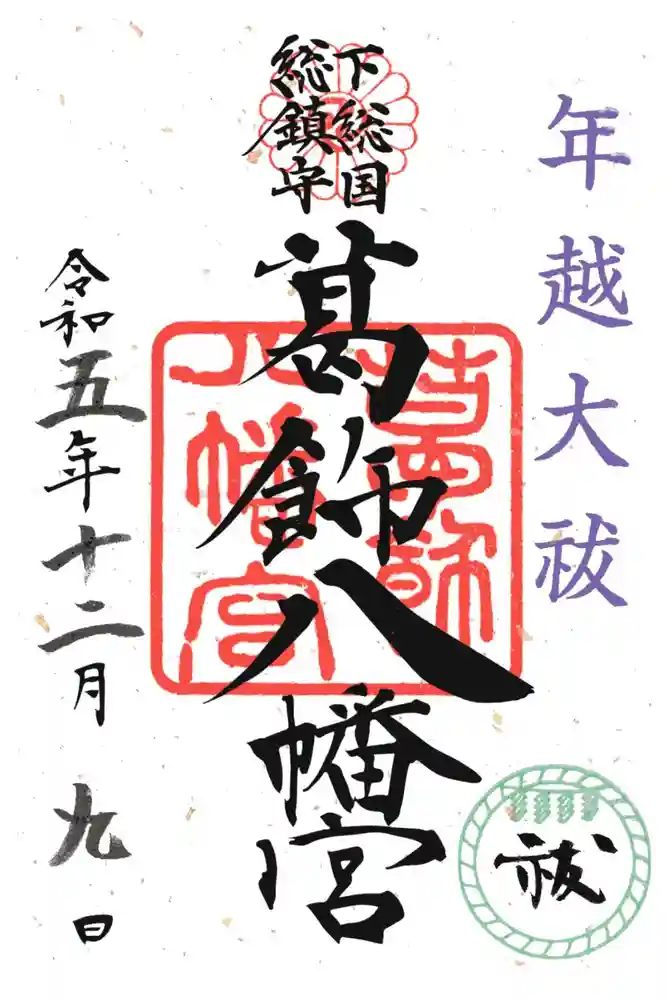 年越大祓
下総国
総鎮守
葛飾八幡宮
葛飾
八幡宮
令和五年十二月九日
祓